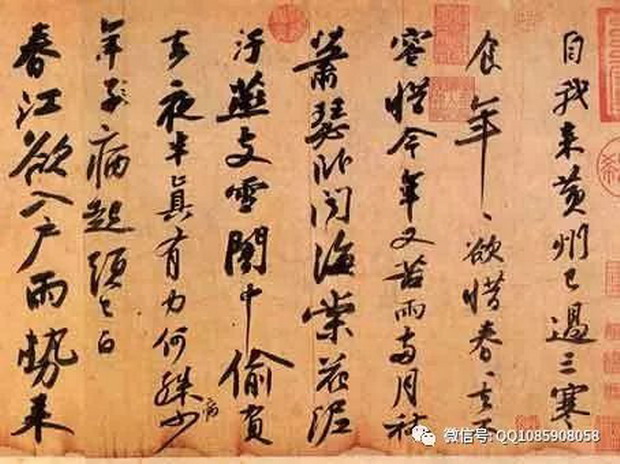 自我来黄州已過三寒
食年〻欲惜春〻去不
容惜今年又苦雨兩月秋
蕭瑟卧聞海棠花泥
汙燕支雪闇中偷負
去夜半真有力何殊少
病
年子病起頭已白
春江欲入户雨勢来
微信号: QQ1085908058